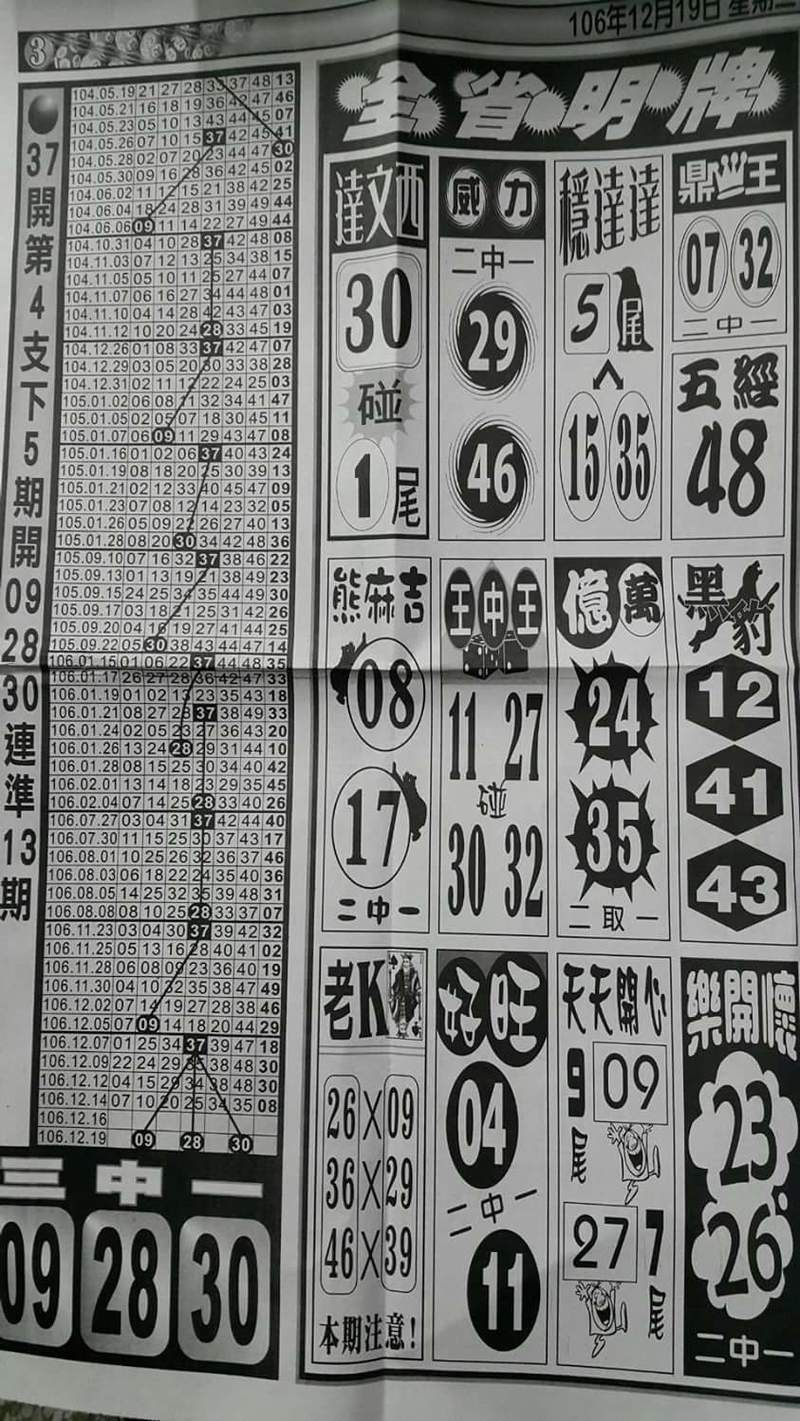 3
106年12月19日
37開第4支下5期開09 28 30連準13期
104.05.19 21 27 28 33 37 48 13
104.05.21 16 18 19 36 42 47 46
104.05.23 05 10 13 43 44 45 07
104.05.26 07 10 15 37 42 45 41
104.05.28 02 07 20 23 44 47 30
104.05.30 09 16 28 36 42 45 02
104.06.02 11 12 15 21 38 42 25
104.06.04 18 24 28 31 39 49 44
104.06.06 09 11 14 22 27 49 44
104.10.31 04 10 28 37 42 48 08
104.11.03 07 12 13 25 34 38 15
104.11.05 05 10 11 25 27 44 07
104.11.07 06 16 27 34 44 48 01
104.11.10 04 14 28 42 43 47 03
104.11.12 10 20 24 28 33 45 19
104.12.26 01 08 33 37 42 47 07
104.12.29 03 05 20 30 33 38 28
104.12.31 02 11 12 22 24 25 03
105.01.02 06 08 11 32 34 41 47
105.01.05 02 05 07 18 30 45 11
105.01.07 06 09 11 29 43 47 08
105.01.16 01 02 06 37 40 43 24
105.01.19 08 18 20 25 30 39 13
105.01.21 02 12 33 40 45 47 09
105.01.23 07 08 12 14 23 32 05
105.01.26 05 09 22 26 27 40 13
105.01.28 08 20 30 34 42 48 36
105.09.10 07 16 32 37 38 46 22
105.09.13 01 13 19 21 38 49 23
105.09.15 24 25 34 35 44 49 30
105.09.17 03 18 21 25 31 42 26
105.09.20 04 16 19 27 41 44 25
105.09.22 05 30 38 43 44 47 14
106.01.15 01 06 22 37 44 48 35
106.01.17 26 27 28 36 42 47 33
106.01.19 01 02 13 23 35 43 18
106.01.21 08 27 28 37 38 49 33
106.01.24 02 05 23 27 36 43 20
106.01.26 13 24 28 29 31 44 10
106.01.28 08 15 25 30 34 40 42
106.02.01 13 14 18 23 29 35 45
106.02.04 07 14 25 28 33 40 26
106.07.27 03 04 31 37 42 44 40
106.07.30 11 15 25 30 37 43 17
106.08.01 10 25 26 32 36 37 46
106.08.03 06 18 22 24 35 40 36
106.08.05 14 25 32 35 39 48 31
106.08.08 08 10 25 28 33 37 07
106.11.23 03 04 30 37 39 42 32
106.11.25 05 13 16 28 40 41 02
106.11.28 06 08 09 23 36 40 19
106.11.30 04 10 32 35 38 47 49
106.12.02 07 14 19 27 28 38 46
106.12.05 07 09 14 18 20 44 29
106.12.07 01 25 34 37 39 47 18
106.12.09 22 24 29 35 38 48 30
106.12.12 04 15 29 34 38 48 30
106.12.14 07 10 20 25 34 35 08
106.12.16
106.12.19 09 28 30
三中一
09 28 30
全省明牌
達文西
30
碰
1尾
威力
二中一
29
46
穩達達
5尾
15 35
鼎王
07 32
二中一
五經
48
熊麻吉
08
17
二中一
王中王
11 27
碰
30 32
億萬
24
35
二取一
黑豹
12
41
43
老K
26X09
36X29
46X39
本期注意!
好旺
04
二中一
11
天天開心
9尾 09
27 7尾
樂開懷
23
26
二中一